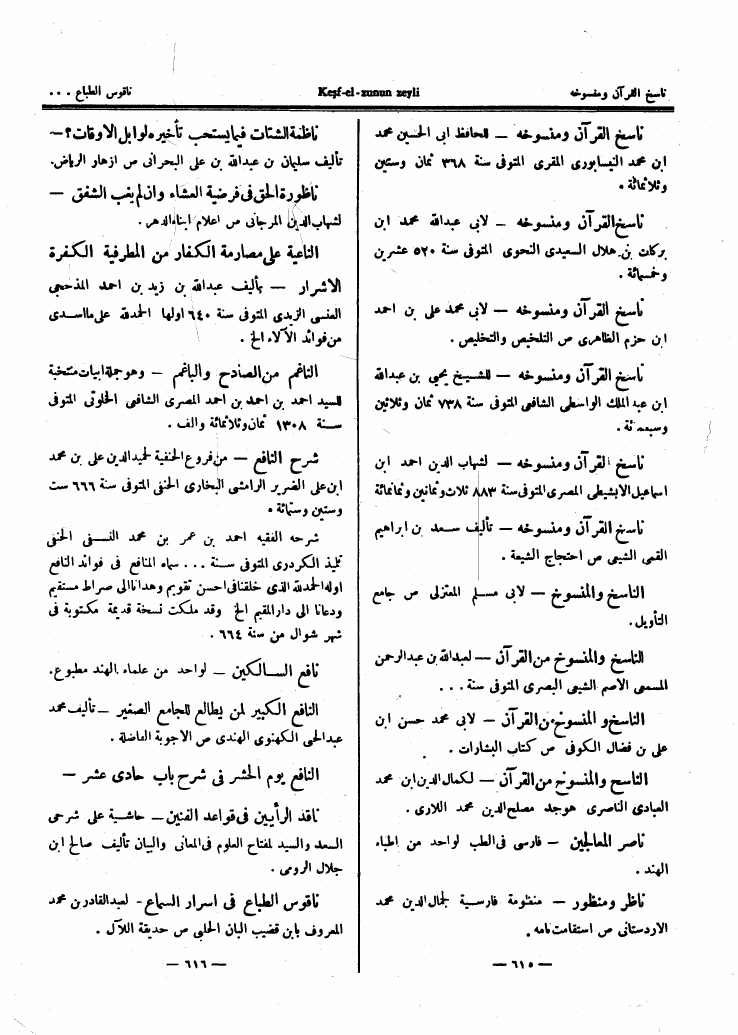 ناسخ القرآن ومنسوخه
Keşf-el-zunun zeyli
ناقوس الطباع ...
ناسخ القرآن ومنسوخه — للحافظ ابى الحسين محمد
ابن محمد النيسابورى المقرى المتوفى سنة ٣٦٨ ثمان وستين
وثلاثمائة.
ناسخ القرآن ومنسوخه — لابى عبدالله محمد ابن
بركات بن هلال السعيدى النحوى المتوفى سنة ٥٢٠ عشرين
وخمسمائة.
ناسخ القرآن ومنسوخه — لابى محمد على بن احمد
ابن حزم الظاهرى ص التلخيص والتخليص.
ناسخ القرآن ومنسوخه — للشيخ يحيى بن عبدالله
ابن عبد الملك الواسطى الشافعى المتوفى سنة ٧٣٨ ثمان وثلاثين
وسبعمائة.
ناسخ القرآن ومنسوخه — لشهاب الدين احمد ابن
اسماعيل الابشيطى المصرى المتوفى سنة ٨٨٣ ثلاث وثمانين وثمانمائة
ناسخ القرآن ومنسوخه — تأليف سعد بن ابراهيم
القمى الشيعى ص احتجاج الشيعة.
الناسخ والمنسوخ — لابى مسلم المعتزلى ص جامع
التأويل.
الناسخ والمنسوخ من القرآن — لعبدالله بن عبدالرحمن
المسمعى الاصم الشيعى البصرى المتوفى سنة ...
الناسخ و المنسوخ من القرآن — لابى محمد حسن ابن
على بن فضال الكوفى ص كتاب البشارات.
الناسخ والمنسوخ من القرآن — لكمال الدين ابن محمد
العبادى الناصرى هوجد مصلح الدين محمد اللارى.
ناصر المعالجين — فارسى فى الطب لواحد من اطباء
الهند.
ناظر ومنظور — منظومة فارسية لجمال الدين محمد
الاردستانى ص استقامت نامه.
— ٦١٥ —
ناظمة الشتات فيما يستحب تأخيره لوابل الاوقات؟—
تأليف سليمان بن عبدالله بن على البحرانى ص ازهار الرياض.
ناظورة الحق فى فرضية العشاء وان لم يغب الشفق —
لشهاب الدين المرجانى ص اعلام ابناء الدهر.
الناعية على مصارمة الكفار من المطرفية الكفرة
الاشرار — تأليف عبدالله بن زيد بن احمد المذحجى
العنسى الزيدى المتوفى سنة ٦٤٠ اولها الحمدلله على مااسدى
من فوائد الآلاء الخ.
الناغم من الصادح والباغم — وهو جملة ابيات منتخبة
للسيد احمد بن احمد بن احمد المصرى الشافعى الخلوتى المتوفى
سنة ١٣٠٨ ثمان وثلاثمائة والف.
شرح النافع — من فروع الحنفية لحميدالدين على بن محمد
ابن على الضرير الرامشى البخارى الحنفى المتوفى سنة ٦٦٦ ست
وستين وستمائة.
شرحه الفقيه احمد بن عمر بن محمد النسفى الحنفى
تلميذ الكردرى المتوفى سنة ... سماه المنافع فى فوائد النافع
اوله الحمدلله الذى خلقنا فى احسن تقويم وهدانا الى صراط مستقيم
ودعانا الى دارالمقيم الخ وقد ملكت نسخة قديمة مكتوبة فى
شهر شوال من سنة ٦٦٤.
نافع السالكين — لواحد من علماء الهند مطبوع.
النافع الكبير لمن يطالع للجامع الصغير — تأليف محمد
عبدالحى الكهنوى الهندى ص الاجوبة الفاضلة.
النافع يوم الحشر فى شرح باب حادى عشر —
ناقد الرأيين فى قواعد الفنين — حاشية على شرحى
السعد والسيد لمفتاح العلوم فى المعانى والبيان تأليف صالح ابن
جلال الرومى.
ناقوس الطباع فى اسرار السماع - لعبدالقادر بن محمد
المعروف بابن قضيب البان الحلبى ص حديقة اللآل.
— ٦١٦ —